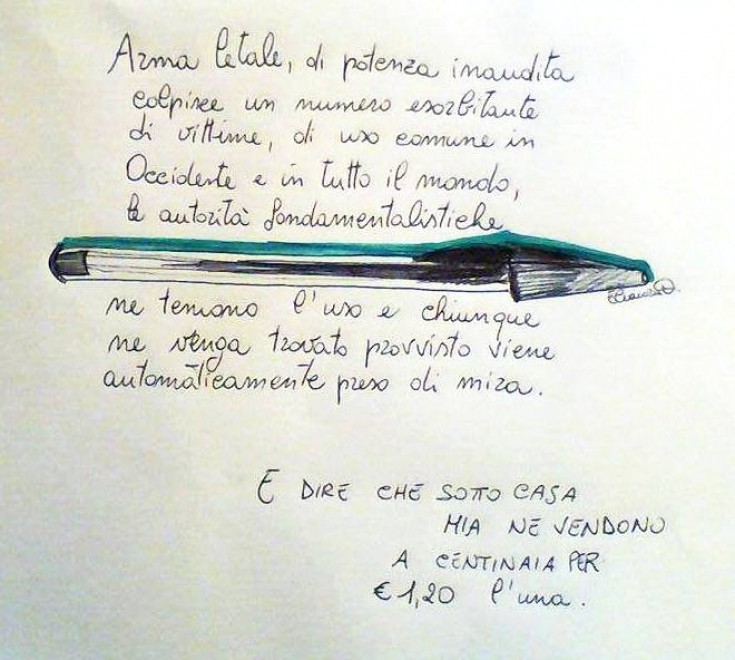 Arma letale, di potenza inaudita
colpisce un numero esorbitante
di vittime, di uso comune in
Occidente e in tutto il mondo,
le autorità fondamentalistiche
ne temono l'uso e chiunque
ne venga trovato provvisto viene
automaticamente preso di mira.
E DIRE CHE SOTTO CASA
MIA NE VENDONO
A CENTINAIA PER
€ 1,20 l'una.